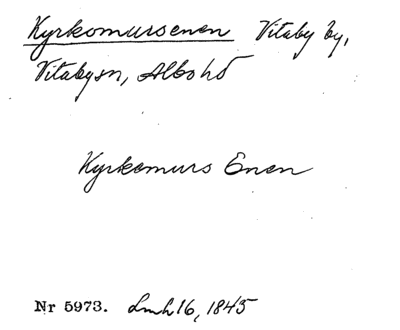 Kyrkomursenen Vitaby by,
Vitabysn, Albohd
Kyrkomurs Enen
Nr 5973. Lmh 16, 1845